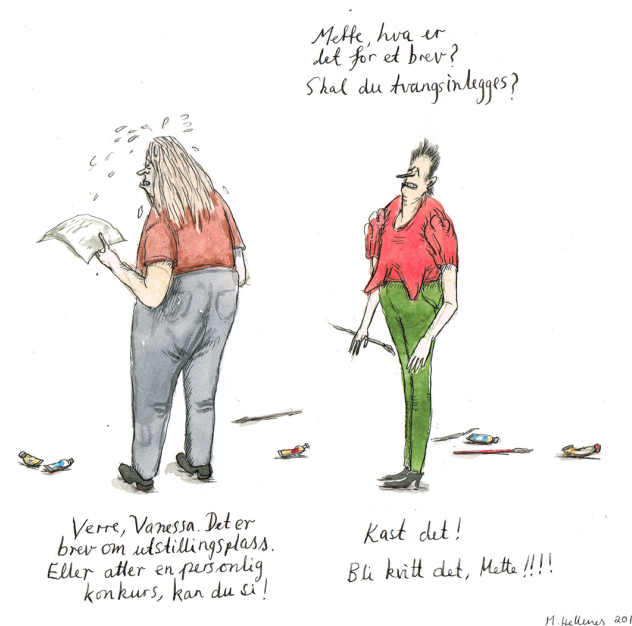 Mette, hva er
det for et brev?
Skal du tvangsinlegges?
Verre, Vanessa. Det er
brev om utstillingsplass.
Eller atter en personlig
konkurs, kan du si!
Kast det!
Bli kvitt det, Mette!!!!
M. Hellenes 201